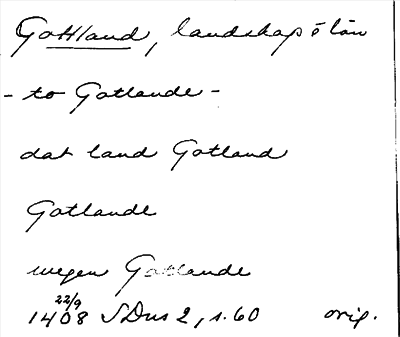 Gottland, landskap o län
- to Gotlande -
dat land Gotland
Gotlande
wegen Gotlande
22/9
1408 SDns 2, s. 60 orig.